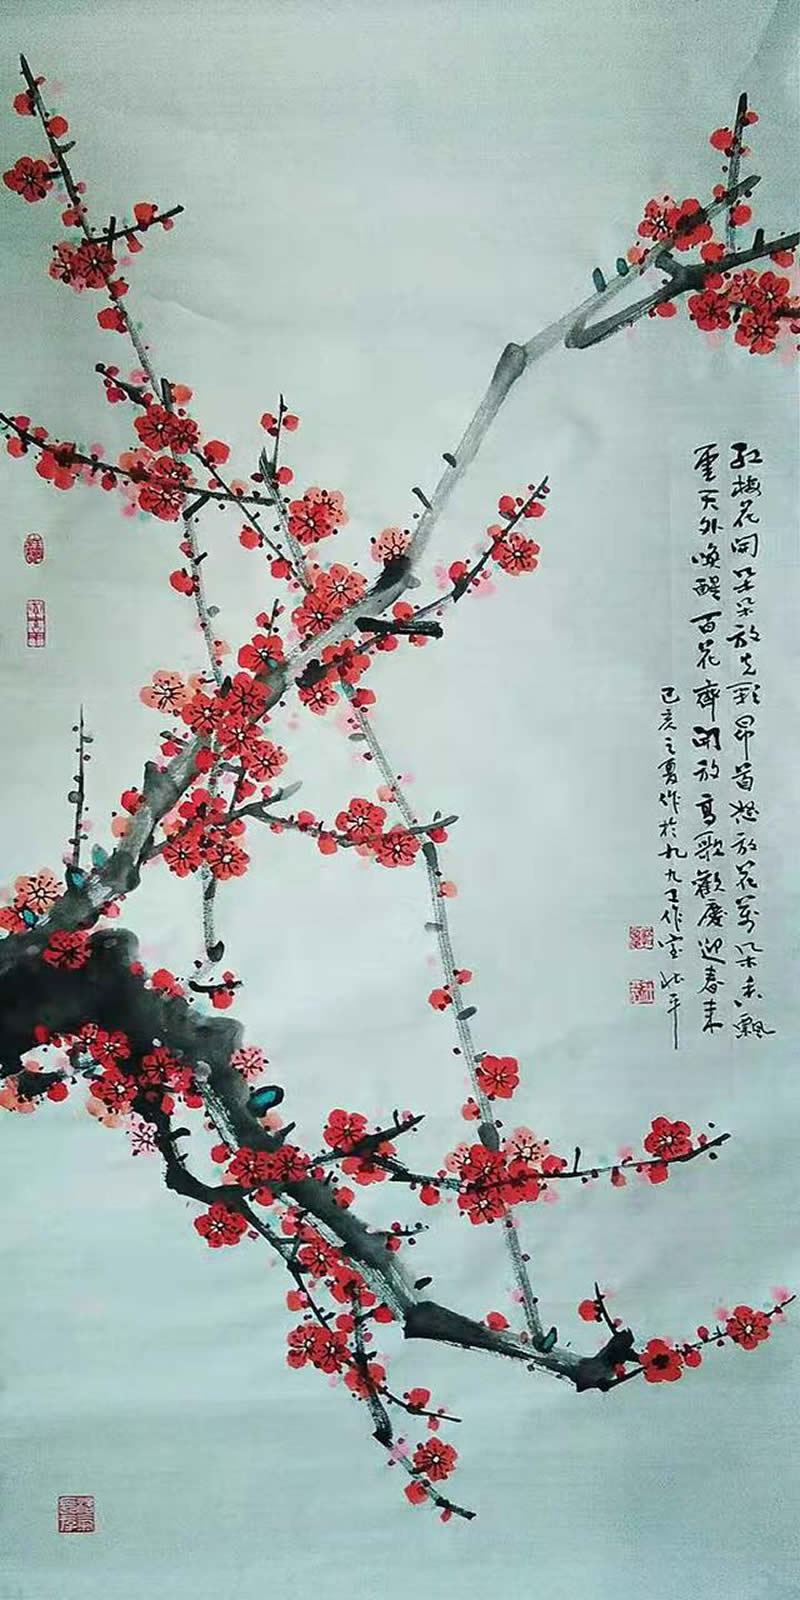 红梅花開朵朵放光彩昂首怒放花萬朵香飄
雲天外喚醒百花齊開放高歌歡慶迎春来
己亥之夏作於九九工作室 平